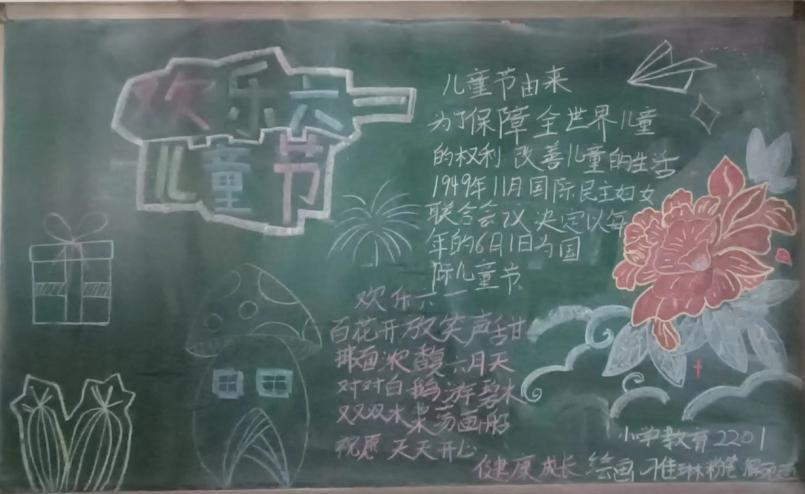 欢乐六一
儿童节
儿童节由来
为了保障全世界儿童
的权利 改善儿童的生活
1949年11月国际民主妇女
联合会议 决定以每
年的6月1日为国
际儿童节
欢乐六一
百花开放笑声甜
拂面浓馥六月天
对对白鹅游碧水
双双木桨荡画船
祝愿 天天开心
健康成长
小学教育2201
绘画 雅琳 粉笔